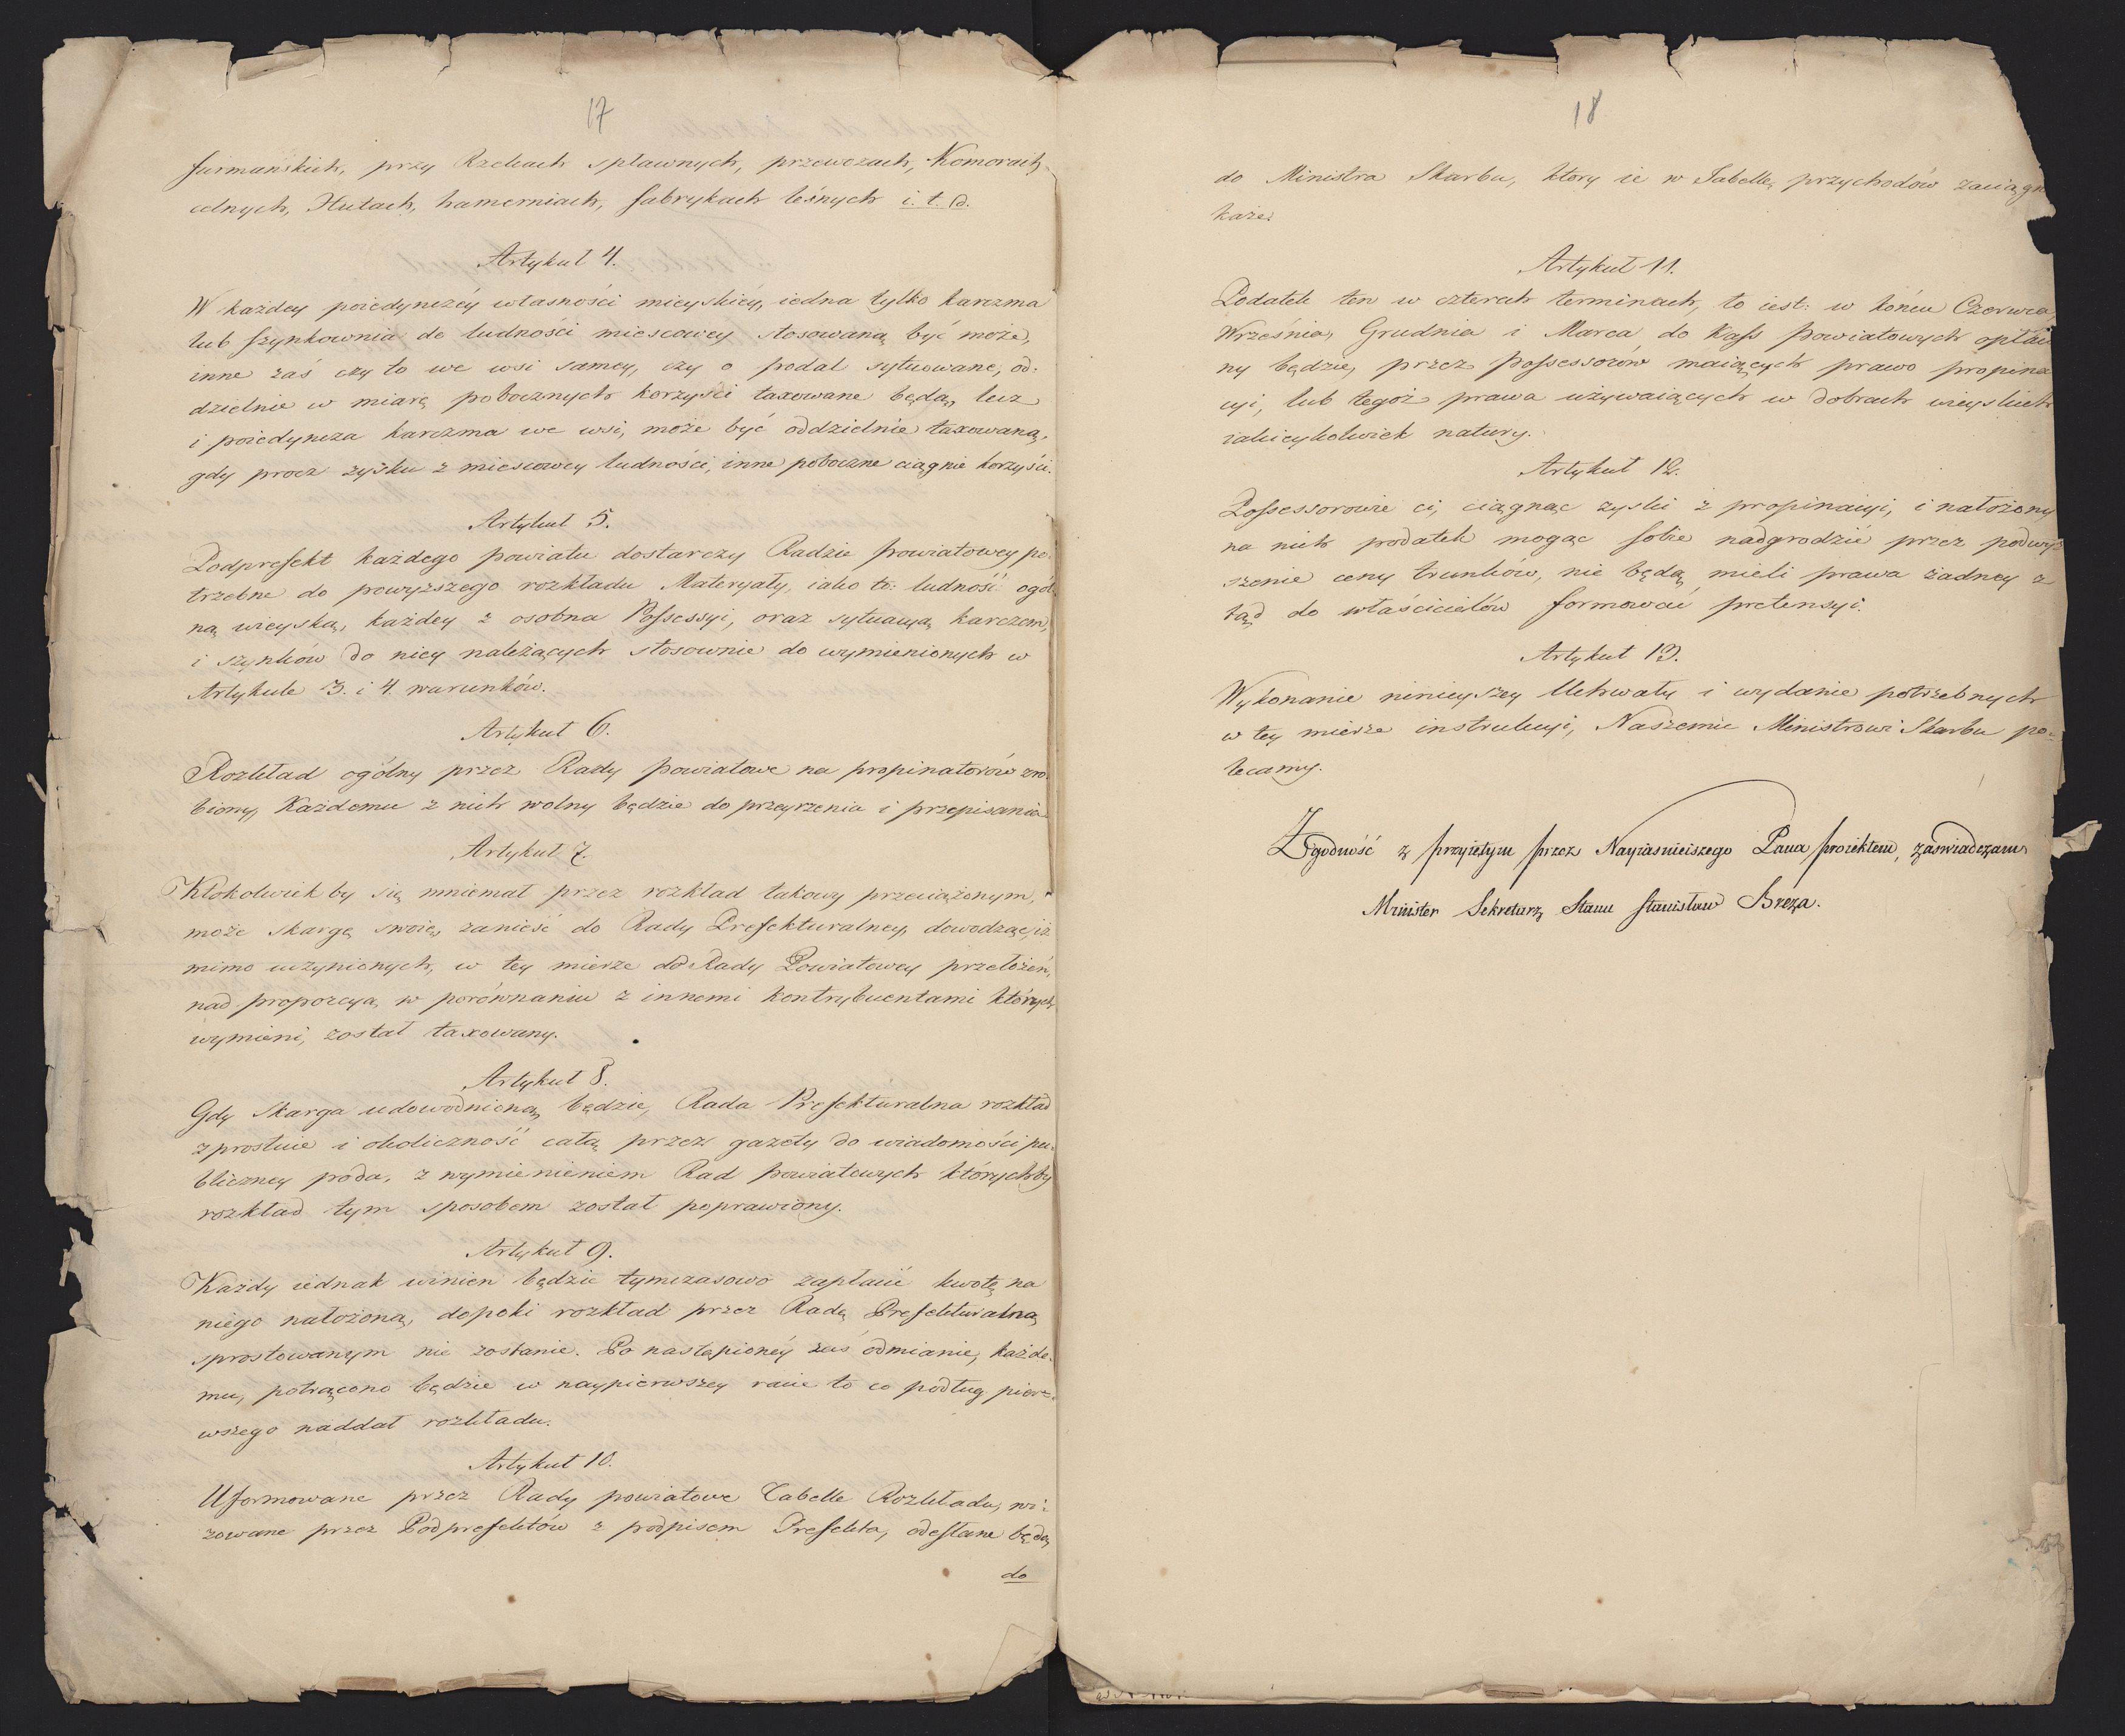 17
furmańskich, przy Rzekach spławnych, przewozach, Komorach
celnych, Hutach, hamerniach, fabrykach leśnych i. t. d.
Artykuł 4.
W każdey poiedynczéy własności mieyskiéy, iedna tylko karczma
lub szynkownia do ludności miescowey stosowaną być może,
inne zaś czy to we wsi samey, czy o podal sytuowane, od:
dzielnie w miarę pobocznych korzyści taxowane będą, lecz
i poiedyncza karczma we wsi, może być oddzielnie taxowaną,
gdy procz zysku z miescowey ludności, inne poboczne ciągnie korzyści.
Artykuł 5.
Podprefekt każdego powiatu dostarczy Radzie powiatowey po:
trzebne do powyższego rozkładu Materyały, iako to: ludność ogól:
ną wieyską, każdey z osobna Possessyi, oraz sytuacyą karczem,
i szynków do niey należących stosownie do wymienionych w
Artykule 3. i 4. warunków.
Artykuł 6.
Rozkład ogólny przez Rady powiatowe na propinatorów zro:
biony, Każdemu z nich wolny będzie do przeyrzenia i przepisania
Artykuł 7.
Ktokolwiek by się mniemał przez rozkład takowy przeciążonym,
może skargę swoię zanieść do Rady Prefekturalney, dowodząc, iż
mimo uczynionych, w tey mierze do Rady Powiatowey przełożeń,
nad proporcyą w porównaniu z innemi kontrybuentami których
wymieni, został taxowany.
Artykuł 8.
Gdy Skarga udowodnioną będzie, Rada Prefekturalna rozkład
zprostuie i okoliczność całą przez gazety do wiadomości pu:
bliczney poda, z wymienieniem Rad powiatowych którychby
rozkład tym sposobem został poprawiony.
Artykuł 9.
Każdy iednak winien będzie tymczasowo zapłacić kwotę na
niego nałożoną, dopoki rozkład przez Radę Prefekturalną
sprostowanym nie zostanie. Po nastąpionéy zaś odmianie, każde:
mu, potrącono będzie w naypierwszey racie to co podług pier:
wszego naddał rozkładu.
Artykuł 10.
Uformowane przez Rady powiatowe Tabelle Rozkładu, wi:
zowane przez Podprefektów z podpisem Prefekta, odesłane będą
do
18
do Ministra Skarbu, ktory ie w Tabellę przychodów zaciągn
każe.
Artykuł 11.
Podatek ten w czterech terminach, to iest: w końcu Czerwca,
Września, Grudnia i Marca do Kass powiatowych opłac
ny będzie, przez possessorów maiących prawo propina
cyi, lub tegoż prawa używaiących w dobrach wieyskich
iakieykolwiek natury.
Artykuł 12.
Possessorowie ci, ciągnąc zyski z propinacyi, i nałożony
na nich podatek mogąc sobie nadgrodzić przez podwyż
szenie ceny trunków, nie będą mieli prawa żadney z
tąd do właścicielów formować pretensyi.
Artykuł 13.
Wykonanie ninieyszey Uchwały i wydanie potrzebnych
w tey mierze instrukcyi, Naszemu Ministrowi Skarbu po:
lecamy.
Zgodność z przyiętym przez Nayiasnieiszego Pana proiektem, zaswiadczam
Minister Sekretarz Stanu Stanisław Breza.